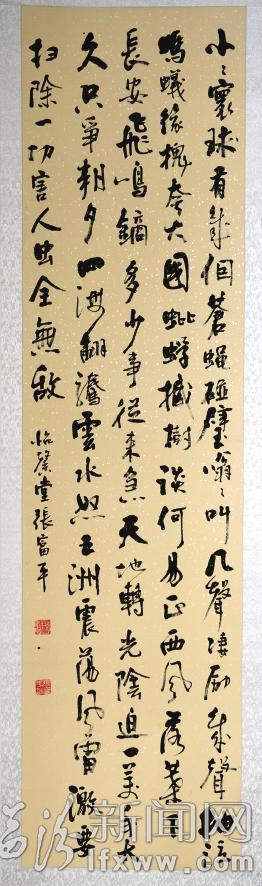 小々寰球有幾個蒼蝇碰壁嗡々叫几聲凄厲幾聲抽泣
螞蟻缘槐夸大國蚍蜉撼樹談何易正西風落葉下
長安飛鳴鏑多少事從来急天地轉光陰迫一萬年太
久只爭朝夕四海翻騰雲水怒五洲震蕩風雷激要
扫除一切害人虫全無敌
怡馨堂張富平
汾新闻网
lfxww.com